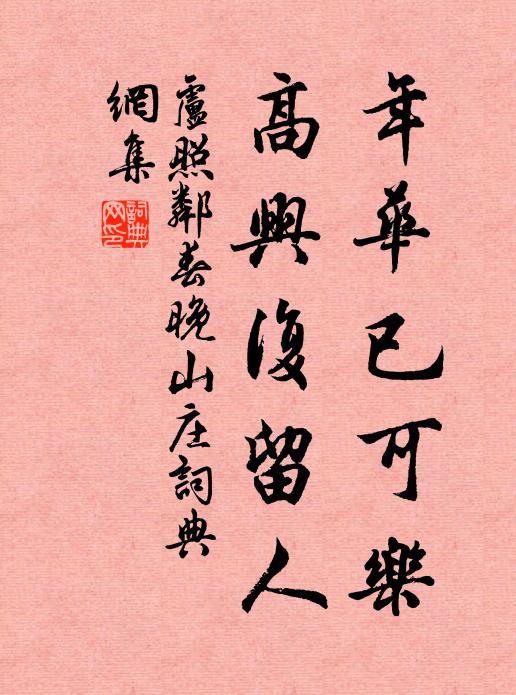 年華已可樂
高興復留人
盧照鄰春晚山庄詞典
網集
詞典
网印